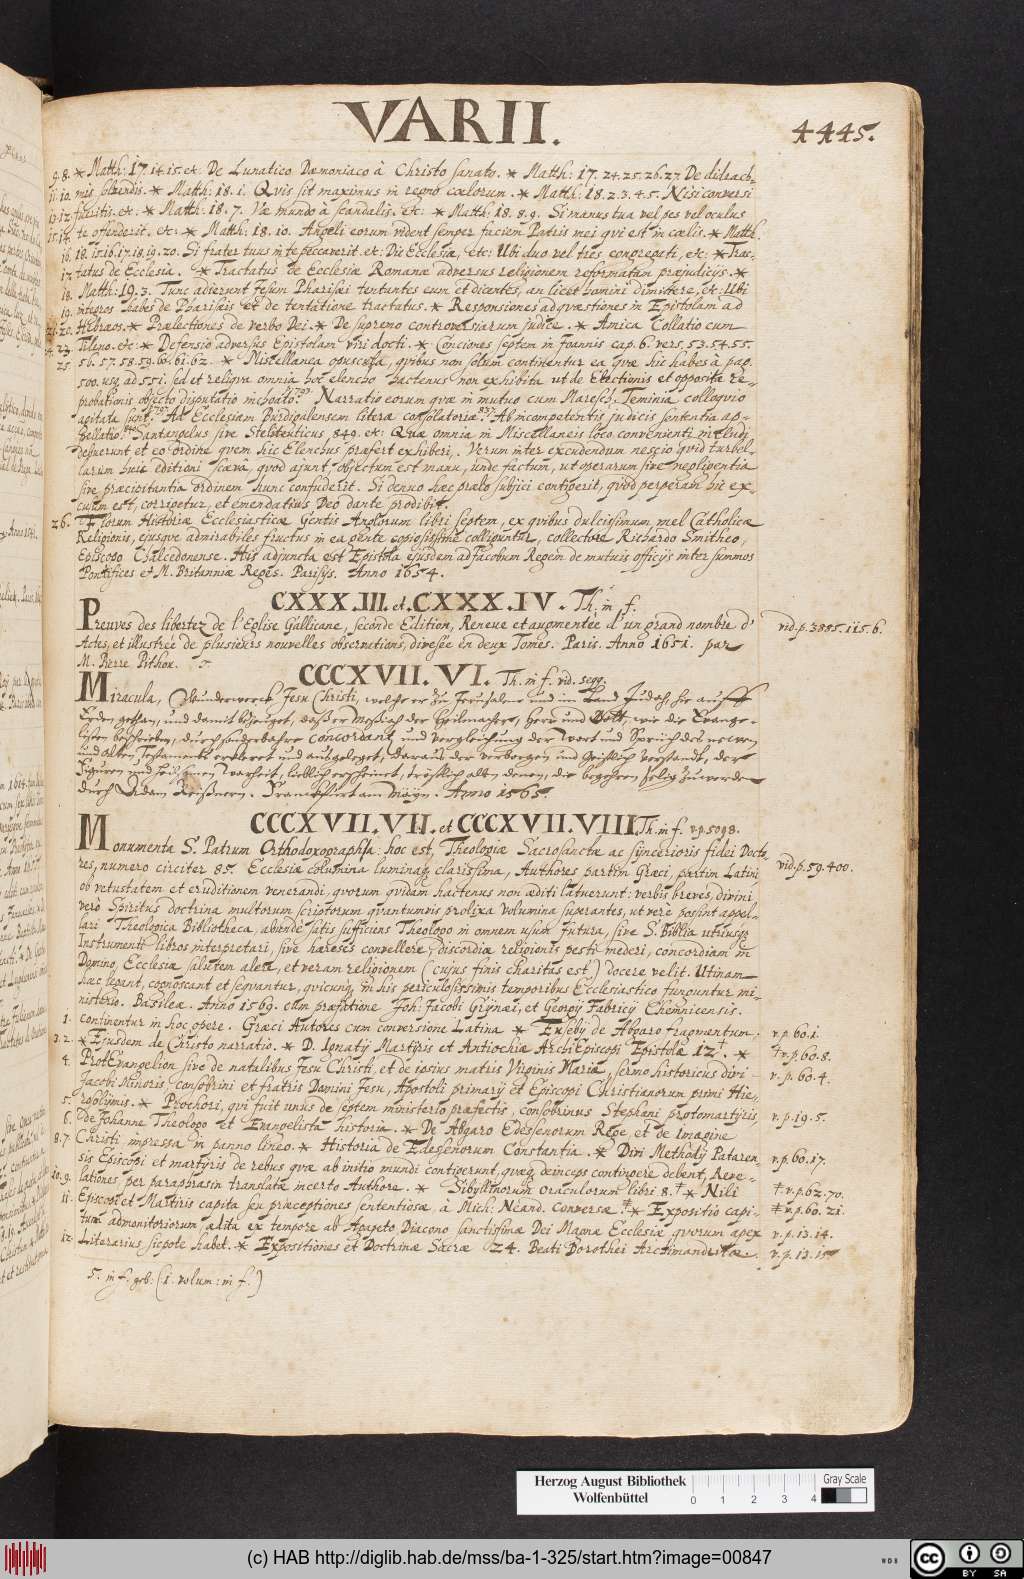 VARII.
4445.
9. 8. * Matth: 17. 14. 15. etc. De Lunatico Dæmoniaco à Christo sanato. * Matth: 17. 24. 25. 26. 27. De didrach-
11. 10. mis solvendis. * Matth: 18. 1. Qvis sit maximus in regno cœlorum. * Matth: 18. 2. 3. 4. 5. Nisi conversi
13. 12. fueritis. etc: * Matth: 18. 7. Væ mundo à scandalis. etc: * Matth: 18. 8. 9. Si manus tua vel pes vel oculus
15. 14. te offenderit. etc: * Matth: 18. 10. Angeli eorum vident semper faciem Patris mei qvi est in cœlis. * Matth:
16. 18. 15. 16. 17. 18. 19. 20. Si frater tuus in te peccaverit. et: Dic Ecclesiæ, etc: Ubi duo vel tres congregati, etc: * Trac-
17. tatus de Ecclesia. * Tractatus de Ecclesia Romanæ adversus religionem reformatam præjudicijs. *
18. Matth: 19. 3. Tunc adierunt Jesum Pharisæi tentantes eum et dicentes, an licet homini dimittere, etc: Ubi
19. integros habes de Pharisæis et de tentatione tractatus. * Responsiones ad qvæstiones in Epistolam ad
21. 20. Hebræos. * Prælectiones de verbo Dei. * De supremo controversiarum judice. * Amica Collatio cum
24. 23. Tileno. etc: * Defensio adversus Epistolam viri docti. * Conciones septem in Joannis cap. 6. vers. 53. 54. 55.
25. 56. 57. 58. 59. 60. 61. 62. * Miscellanea opuscula, qvibus non solum continentur ea qvæ hic habes à pag.
500. usq ad 551. sed et reliqva omnia hoc elencho hactenus non exhibita ut de Electionis et opposita re-
probationis objecto disputatio inchoata. 703. Narratio eorum qvæ in mutuo cum Maresch. Teminia colloqvio
agitata sunt. 797. Ad Ecclesiam Burdigalensem literæ consolatoriæ. 837. Ab incompetentis judicis sententia ap-
pellatio. 840. Santangelus sive Steliteuticus, 849. etc: Qvæ omnia in Miscellaneis loco convenienti includi
debuerunt et eo ordine qvem hic Elenchus præfert exhiberi. Verum inter excudendum nescio qvid turbel-
larum huic editioni scæva, qvod ajunt, objectum est manu, unde factum, ut operarum sive negligentia
sive præcipitantia ordinem hunc confuderit. Si denuo hæc prælo subjici contigerit, qvod perperam hic ex-
cusum est, corrigetur, et emendatius Deo dante prodibit.
26. Florum Historiæ Ecclesiasticæ Gentis Anglorum libri septem, ex qvibus dulcissimum mel Catholicæ
Religionis, ejusque admirabiles fructus in ea gente copiosissime colliguntur, collectore Richardo Smitheo,
Episcopo Chalcedonense. His adjuncta est Epistola ejusdem ad Jacobum Regem de mutuis officijs inter summos
Pontifices et M. Britanniæ Reges. Parisijs. Anno 1654.
CXXX.III. et CXXX.IV. Th. in f.
Preuves des libertez de l'Eglise Gallicane, seconde Edition, Reveue et augmentée d'un grand nombre d'
Actes, et illustrée de plusieurs nouvelles observations, divisée en deux Tomes. Paris. Anno 1651. par
M. Pierre Pithou.
vid. p. 3855. 115. 6.
CCCXVII. VI. Th. in f. vid. seqq.
Miracula, Wunderwerck Jesu Christi, welche er zu Jerusalem und im Land Judah, hie auff
Erden gethan, und damit bezeuget, dass er Messiah der Heilmacher, Herr und Gott, wie die Evange-
listen beschrieben, durch sonderbahre Concordantz und vergleichung der wort und Sprüch des newen
und alten Testaments erkleret und ausgeleget, daraus der verborgen und Geistlich verstandt, der
Figuren und warheit, lieblich erscheinet, tröstlich allen denen, die begehren selig zu werden
durch Adam Reissnern. Franckfurt am Mayn. Anno 1565.
CCCXVII. VII. et CCCXVII. VIII. Th. in f. v. p. 5098.
Monumenta S. Patrum Orthodoxographa: hoc est, Theologiæ Sacrosanctæ ac syncerioris fidei Docto-
res, numero circiter 85. Ecclesiæ columina luminaq clarissima, Authores partim Græci, partim Latini
ob vetustatem et eruditionem venerandi, qvorum qvidam hactenus non æditi latuerunt: verbis breves, divini
verò Spiritus doctrina multorum scriptorum qvantumvis prolixa volumina superantes, ut vere possint appel-
lari Theologica Bibliotheca, abinde satis sufficiens Theologo in omnem usum futura, sive S. Biblia utriusq
Instrumenti libros interpretari, sive hæreses convellere, discordiæ religionis pesti mederi, concordiam in
Domino, Ecclesiæ salutem alere, et veram religionem (cujus finis charitas est) docere velit. Utinam
hæc legant, cognoscant et seqvantur, qvicunq in his periculosissimis temporibus Ecclesiastico funguntur mi-
nisterio. Basileæ. Anno 1569. cum præfatione Joh: Jacobi Grynæi, et Georgij Fabricij Chemnicensis.
vid. p. 59. 400.
1. Continentur in hoc opere. Græci Autores cum conversione Latina * Eusebij de Abgaro fragmentum. v. p. 60. 1.
3. 2. * Ejusdem de Christo narratio. * D. Ignatij Martyris et Antiochiæ ArchiEpiscopi Epistolæ 12. † * † v. p. 60. 8.
4. ProtEvangelion sive de natalibus Jesu Christi et de ipsius matris Virginis Mariæ, sermo historicus divi v. p. 60. 4.
Jacobi Minoris consobrini et fratris Domini Jesu, Apostoli primarij et Episcopi Christianorum primi Hie-
5. rosolymis. * Prochori, qvi fuit unus de septem ministerio præfectis, consobrinus Stephani protomartyris, v. p. 19. 5.
6. de Johanne Theologo et Evangelista historia. * De Abgaro Edessenorum Rege et de Imagine
8. 7. Christi impressa in panno lineo. * Historia de Edessenorum Constantia. * Divi Methodij Pataren- v. p. 60. 17.
sis Episcopi et martyris de rebus qvæ ab initio mundi contigerunt, qvæq deinceps contingere debent, Reve-
10. 9. lationes per paraphrasin translatæ incerto Authore. * Sibyllinorum oraculorum libri 8. † * Nili † v. p. 62. 70.
11. Episcopi et Martyris capita seu præceptiones sententiosæ, à Mich: Neand. conversæ ‡ * Expositio capi- ‡ v. p. 60. 21.
tum admonitoriorum, ædita ex tempore ab Agapeto Diacono sanctissimæ Dei Magnæ Ecclesiæ qvorum apex v. p. 13. 14.
12. Literarius sic pote habet. * Expositiones et Doctrinæ Sacræ 24. Beati Dorothei Archimandritæ. v. p. 13. 15
5. in f. geb: (1. volum: in f.)
Herzog August Bibliothek
Wolfenbüttel
0 1 2 3 4
Gray Scale
(c) HAB http://diglib.hab.de/mss/ba-1-325/start.htm?image=00847
WDB
cc BY SA